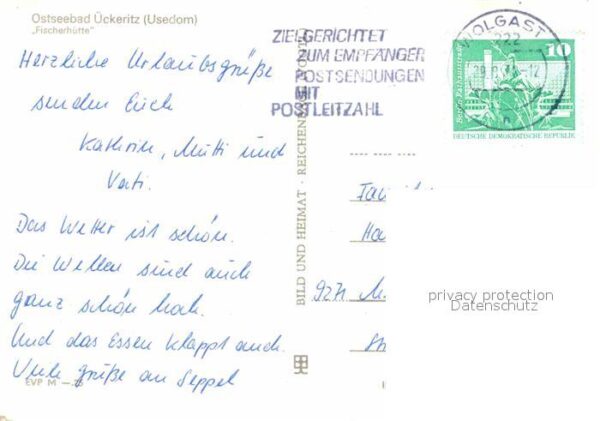 Ostseebad Ückeritz (Usedom)
„Fischerhütte"
Herzliche Urlaubsgrüße
senden Euch
Kathrin, Mutti und
Vati.
Das Wetter ist schön.
Die Wellen sind auch
ganz schön hoch.
Und das Essen klappt auch.
Viele Grüße an Seppel
EVP M
BILD UND HEIMAT · REICHENBACH
ZIELGERICHTET
ZUM EMPFÄNGER
POSTSENDUNGEN
MIT
POSTLEITZAHL
WOLGAST
222
10
DEUTSCHE DEMOKRATISCHE REPUBLIK
Fa
Ha
9271
privacy protection
Datenschutz